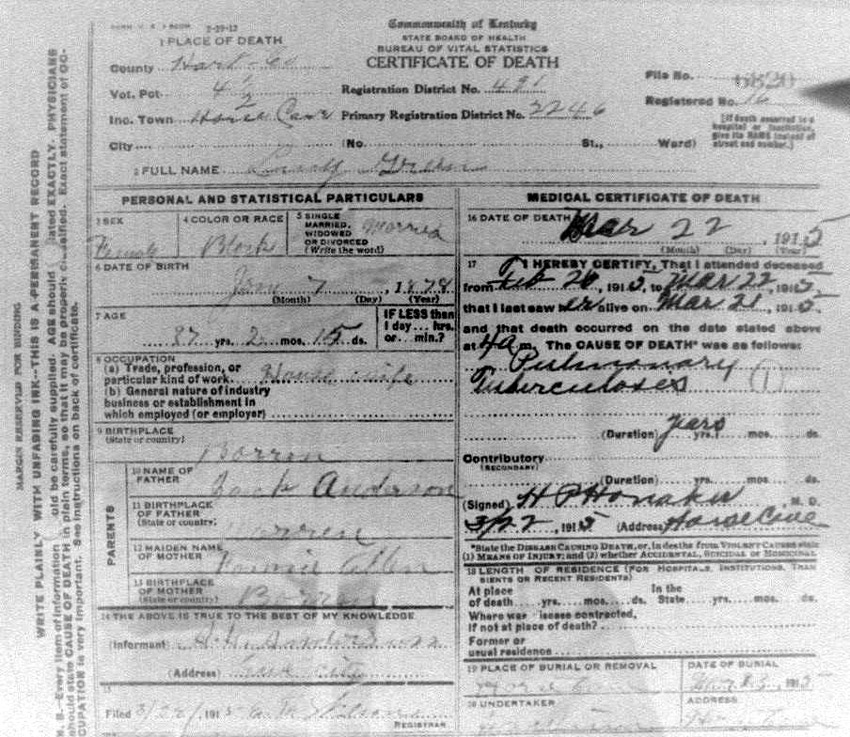 Commonwealth of Kentucky
STATE BOARD OF HEALTH
BUREAU OF VITAL STATISTICS
CERTIFICATE OF DEATH
1 PLACE OF DEATH
County Hart Co
Vot. Pct
Inc. Town Horse Cave
City (No. St., Ward)
Registration District No. 491
Primary Registration District No. 2246
File No. 6820
Registered No. 16
[If death occurred in a
hospital or institution,
give its NAME instead of
street and number.]
2 FULL NAME Green
PERSONAL AND STATISTICAL PARTICULARS
3 SEX Female
4 COLOR OR RACE Black
5 SINGLE
MARRIED,
WIDOWED
OR DIVORCED
(Write the word)
Married
6 DATE OF BIRTH
Jan 7, 1878
(Month) (Day) (Year)
7 AGE
37 yrs. 2 mos. 15 ds.
IF LESS than
1 day... hrs.
or... min.?
8 OCCUPATION
(a) Trade, profession, or
particular kind of work House wife
(b) General nature of industry
business or establishment in
which employed (or employer)
9 BIRTHPLACE
(State or country)
Barren
PARENTS
10 NAME OF
FATHER
Jack Anderson
11 BIRTHPLACE
OF FATHER
(State or country)
12 MAIDEN NAME
OF MOTHER
13 BIRTHPLACE
OF MOTHER
(State or country)
Barren
14 THE ABOVE IS TRUE TO THE BEST OF MY KNOWLEDGE
(Informant)
(Address)
15
Filed 3/22/1915
REGISTRAR
MEDICAL CERTIFICATE OF DEATH
16 DATE OF DEATH Mar 22, 1915
(Month) (Day) (Year)
17 I HEREBY CERTIFY, That I attended deceased
from Feb 20, 1915, to Mar 22, 1915,
that I last saw er alive on Mar 21, 1915,
and that death occurred on the date stated above
at 4 a m. The CAUSE OF DEATH* was as follows:
Pulmonary
Tuberculoses 1
(Duration) years yrs. mos. ds.
Contributory
(SECONDARY)
(Duration) yrs. mos. ds.
(Signed) H P Honaker M. D.
3/22, 1915 (Address) Horse Cave
*State the DISEASE CAUSING DEATH, or, in deaths from VIOLENT CAUSES state
(1) MEANS OF INJURY; and (2) whether ACCIDENTAL, SUICIDAL or HOMICIDAL
18 LENGTH OF RESIDENCE (FOR HOSPITALS, INSTITUTIONS, TRAN
SIENTS OR RECENT RESIDENTS)
At place
of death yrs. mos. ds.
In the
State yrs. mos. ds.
Where was disease contracted,
if not at place of death?
Former or
usual residence
19 PLACE OF BURIAL OR REMOVAL
DATE OF BURIAL
Mar 23, 1915
20 UNDERTAKER
ADDRESS
Horse Cave
MARGIN RESERVED FOR BINDING
WRITE PLAINLY WITH UNFADING INK---THIS IS A PERMANENT RECORD
N. B.--Every item of information should be carefully supplied. AGE should stated EXACTLY. PHYSICIANS
should state CAUSE OF DEATH in plain terms, so that it may be properly classified. Exact statement of OC-
CUPATION is very important. See instructions on back of certificate.